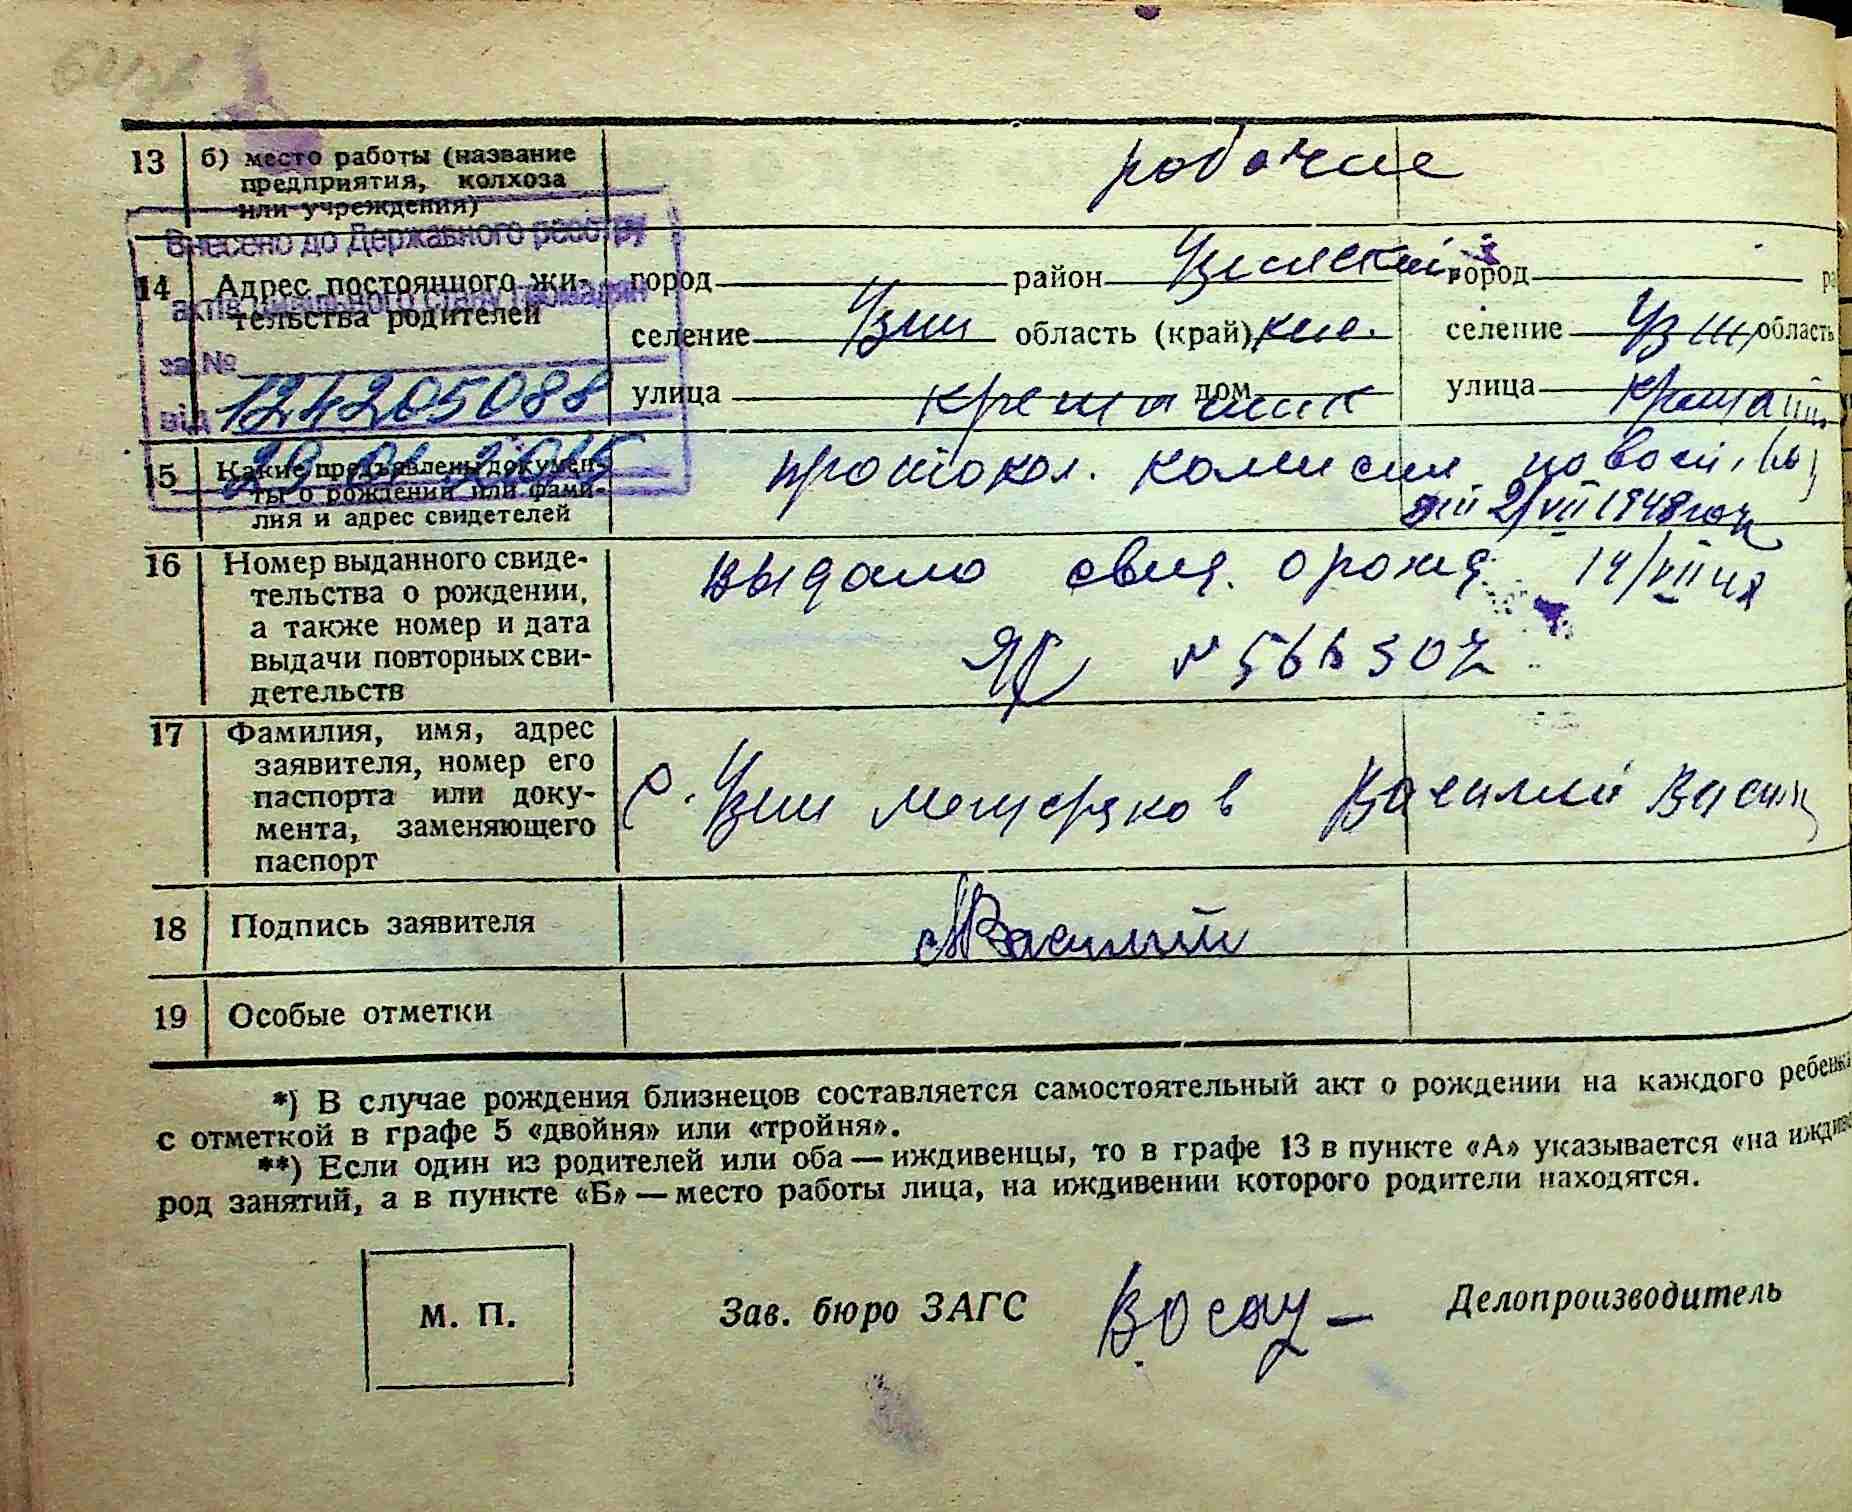 13 б) место работы (название
предприятия, колхоза
или учреждения)
рабочие
Внесено до Державного реєстру
актів цивільного стану громадян
за №
124205088
від
14 Адрес постоянного жи-
тельства родителей
город район город
селение Узин область (край) кие. селение Узин область
улица дом улица
15 Какие предъявлены докумен-
ты о рождении или фами-
лия и адрес свидетелей
протокол. комисии
2/VII 1948
16 Номер выданного свиде-
тельства о рождении,
а также номер и дата
выдачи повторных сви-
детельств
выдано свид. о рожд 14/VII 48
17 Фамилия, имя, адрес
заявителя, номер его
паспорта или доку-
мента, заменяющего
паспорт
с. Узин Мещеряков Василий
18 Подпись заявителя
Василий
19 Особые отметки
*) В случае рождения близнецов составляется самостоятельный акт о рождении на каждого ребенка
с отметкой в графе 5 «двойня» или «тройня».
**) Если один из родителей или оба — иждивенцы, то в графе 13 в пункте «А» указывается «на
род занятий, а в пункте «Б» — место работы лица, на иждивении которого родители находятся.
М. П.
Зав. бюро ЗАГС
Делопроизводитель